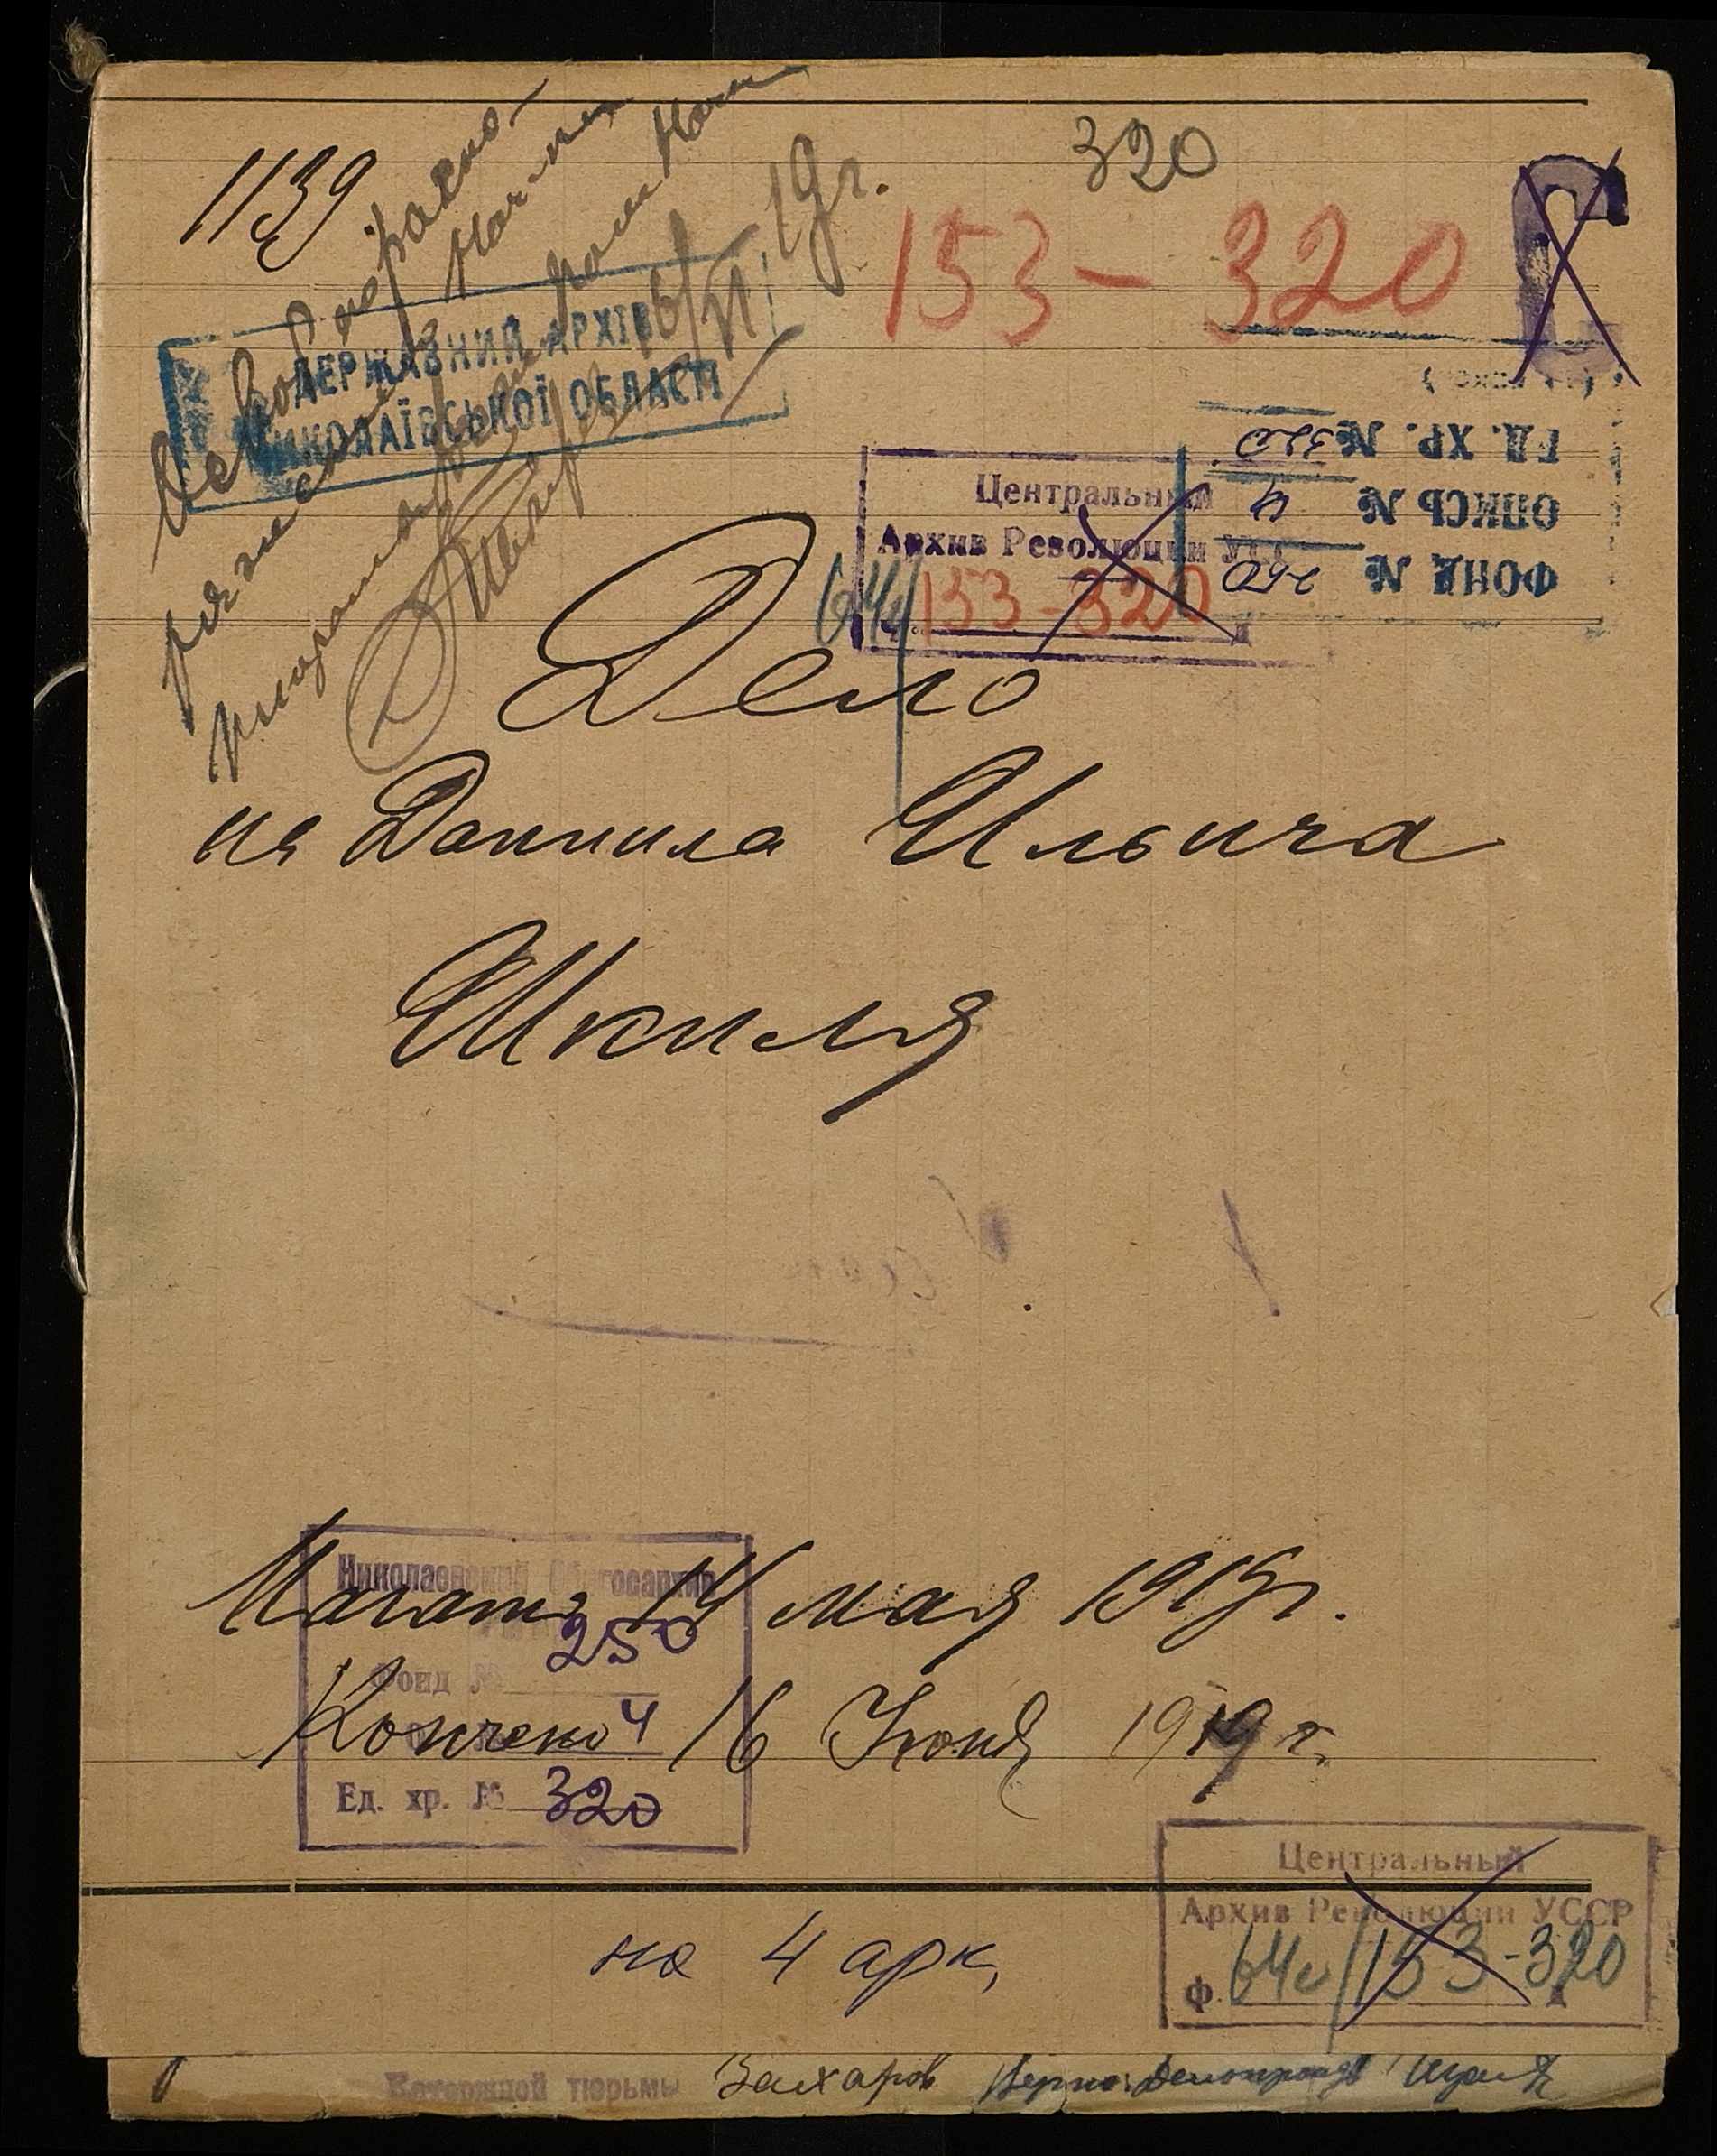 1139
320
153-320
19 г.
16/VI
ДЕРЖАВНИЙ АРХІВ
МИКОЛАЇВСЬКОЇ ОБЛАСТІ
ФОНД № 250
ОПИСЬ № 4
ЕД. ХР. № 320
Центральный
Архив Революции УССР
64с/153-320
Дело
на Даниила Ильича
Шкиля
Николаевский Облгосархив
Начато 14 мая 1919 г.
Фонд № 250
Кончено 16 Июня 1919 г.
4
Ед. хр. № 320
Центральный
Архив Революции УССР
Ф. 64с/153-320
на 4 арк,
Каторжной тюрьмы Захаров Верно: Делопроизв